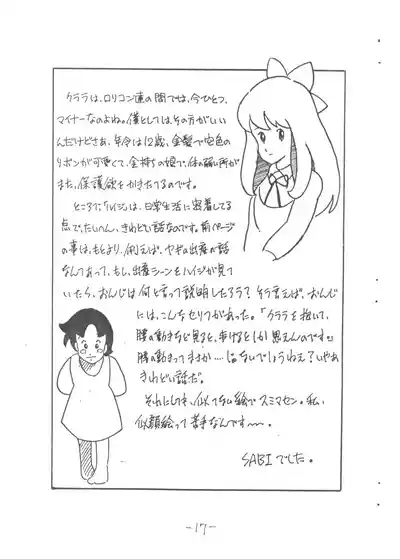 クララは、ロリコン達の間では、今ひとつ、
マイナーなのよね。僕としては、その方がいい
んだけどさぁ、年令は12歳、金髪で空色の
リボンが可愛くて、金持ちの娘で、体の弱い所が
また、保護欲をかきたてるのです。
ところでハイジは、日常生活に密着してる
点で、たいへん、きわどい話なのです。前ページ
の事は、もとより、例えば、ヤギの出産の話
なんてあって、もし、出産シーンをハイジが見て
いたら、おんじは何と言って説明したろう？そう言えば、おんじ
には、こんなセリフがあった。「クララを抱いて、
腰の動きなど見ると、歩けるとしか思えんのです。」
腰の動きってまさか‥‥じゃないでしょうねぇ？いやぁ
きわどい話だ。
それにしても、似てない絵でスミマセン。私、
似顔絵って苦手なんです〜〜。
SABIでした。
-17-